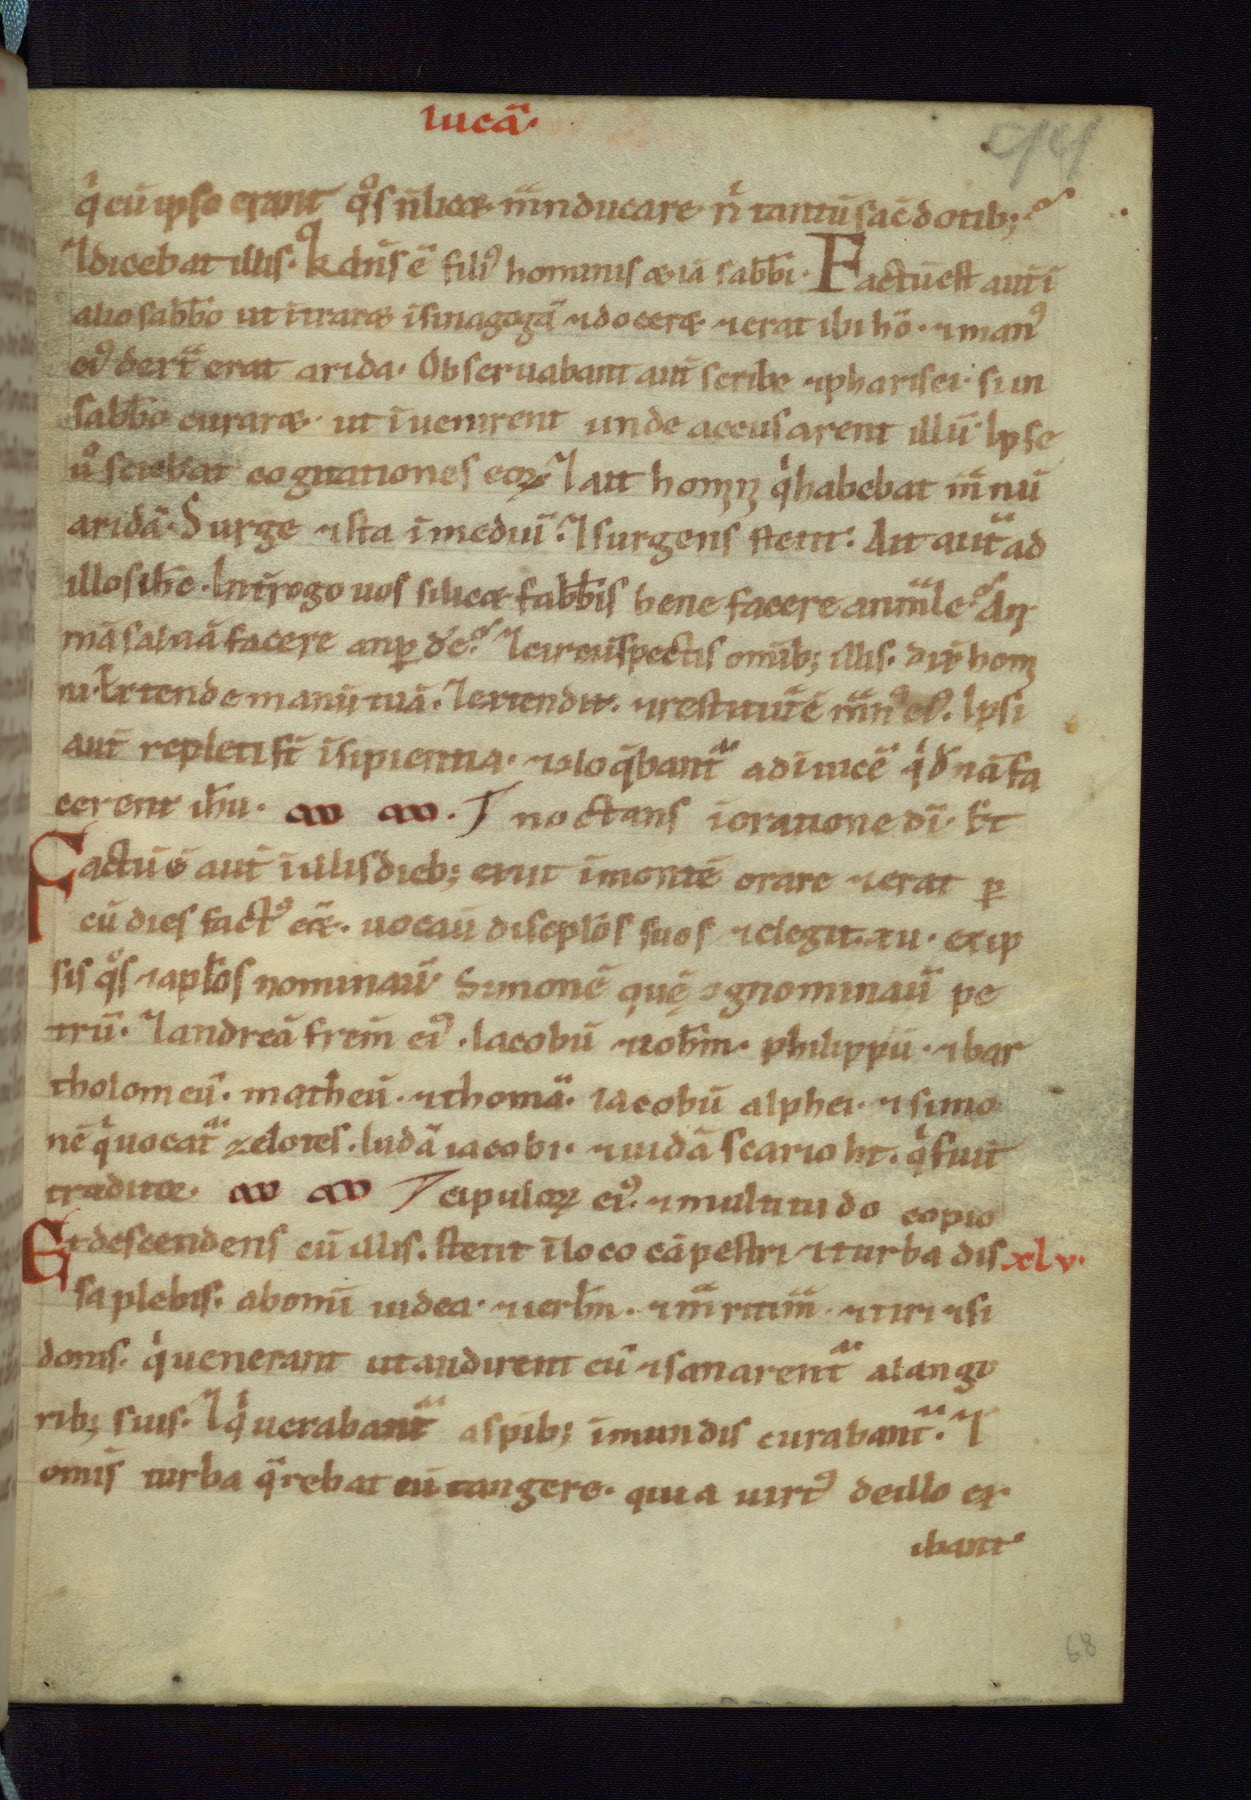 lucā·
qͥ cū ipso erant qͦs n̄ licæ m̄nducare nͥ tantū sac̄dotib;
⁊dicebat illis· q̄a dn̄s ē filiꝰ hominis æiā sabb̄i· Factū est aut̄ ī
alio sabb̄o ut ītraræ ī sinagogā ⁊doceræ ⁊erat ibi hō· ⁊manꝰ
eiꝰ dext̄ erat arida· Obseruabant aut̄ scribe ⁊pharisei· si in
sabb̄o curaræ· ut īuenirent unde accusarent illū· Ipse
uͦ sciebat cogitationes eoꝝ ⁊ait homini qͥ habebat m̄nū
aridā· Surge ⁊sta ī mediū· ⁊surgens stetit· Ait aut̄ ad
illos ih̄c· Int̄rogo uos si licæ sabb̄is bene facere an male· An
mā saluā facere an ꝑdc̄e· ⁊circūspectis omīb; illis· dix̄ homi
ni· Extende manū tuā· ⁊extendit· ⁊restituta ē m̄nꝰ eiꝰ· Ipsi
aut̄ repleti st̄ īsipientia· ⁊loq̄bant᷑ ad īuicē qͥd nā fa
cerent ih̄u· noctans ī oratione dī· &
Factū ē aut̄ ī illis dieb; exiit ī montē orare ⁊erat ꝑ
cū dies factꝰ eēt· uocauī discipl̄os suos ⁊elegit· xii· ex ip
sis qͦs ⁊apl̄os nominauī· Simonē quę cognominauī pe
trū· ⁊andreā frem̄ eiꝰ· Iacobū ⁊ioh̄m· philippū· ⁊bar
tholomeū· matheū· ⁊thomā· iacobū alphei· ⁊simo
nē qͥ uocat᷑ zelotes· Iudā iacobi· ⁊iudā scarioht· qͥ fuit
traditor· cipuloꝝ eiꝰ· ⁊multitudo copio
Et descendens cū illis· stetit ī loco cāpestri ⁊turba dis xlv·
sa plebis· ab omī iudea· ⁊ierl̄m· ⁊m̄ritim̄ ⁊tiri ⁊si
donis· qͥ uenerant ut audirent eū ⁊sanarent᷑ a lango
rib; suis· ⁊qͥ uexabant᷑ a spīb; īmundis curabant᷑· ⁊
omīs turba q̄rebat eū tangere· quia uirtꝰ de illo ex
ibant·
68